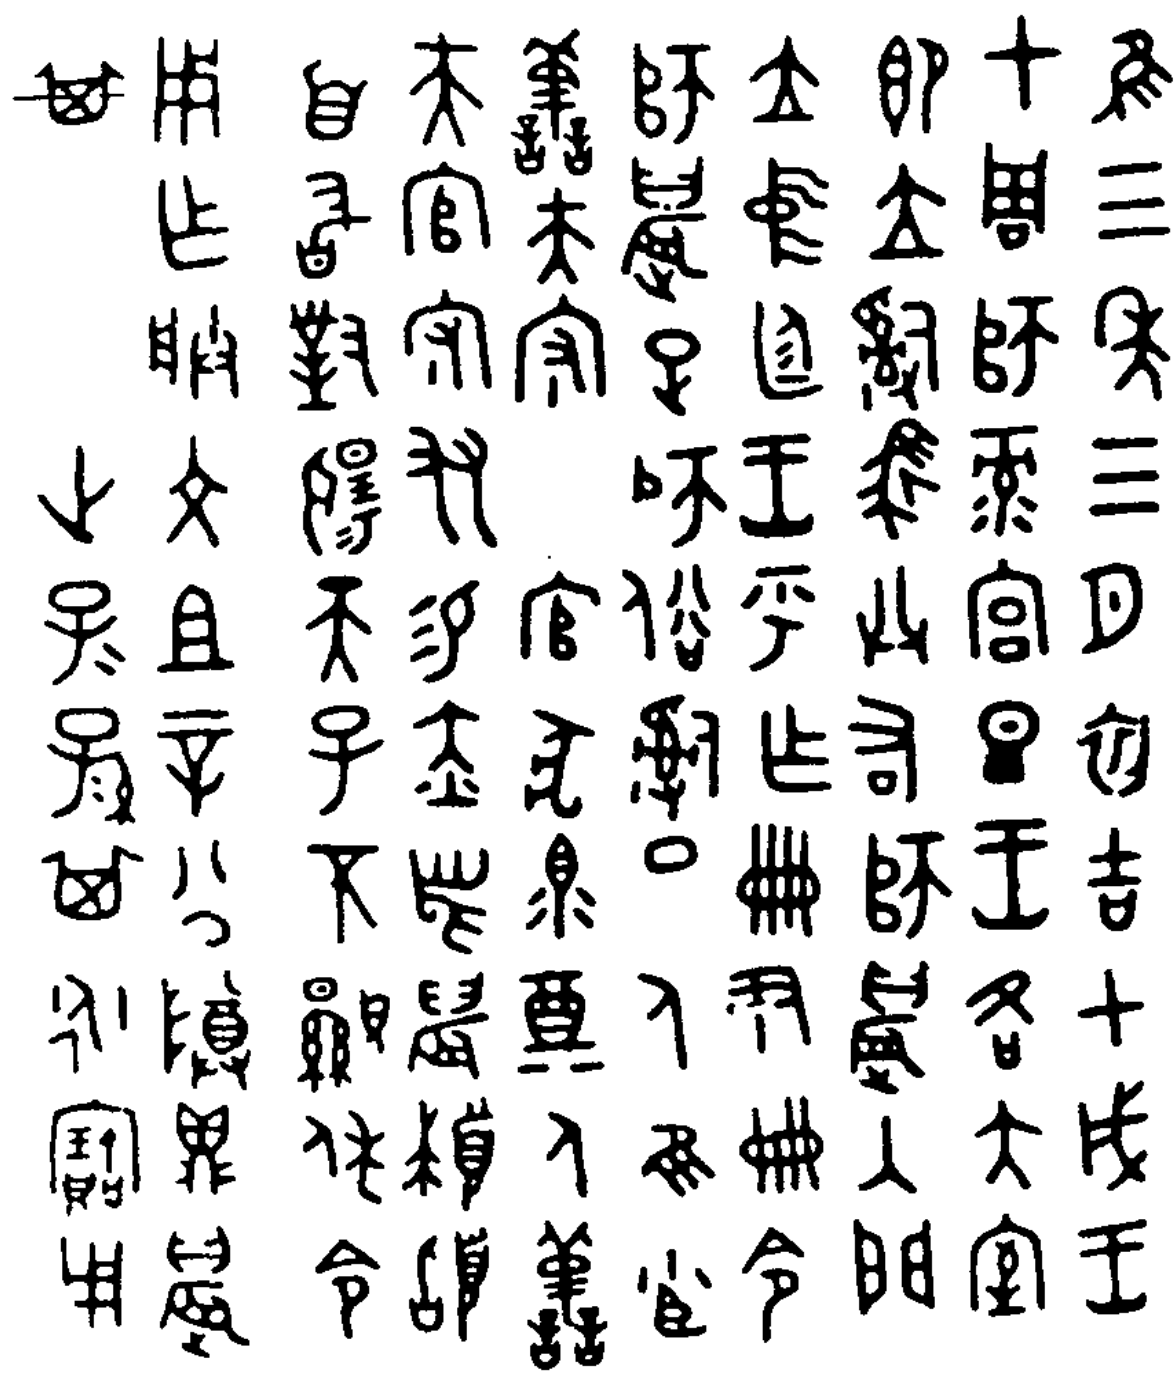 隹三年三月初吉甲戌王
才周師彔宮旦王各大室
即立司馬共右師晨入門
立中廷王乎乍冊尹冊令
師晨疋師俗司邑人隹小臣
善夫守官犬眔奠人善
夫官守友易赤舄晨拜𩒨
首敢對揚天子不顯休令
用乍朕文且辛公尊鼎晨
其世子子孫孫其永寶用